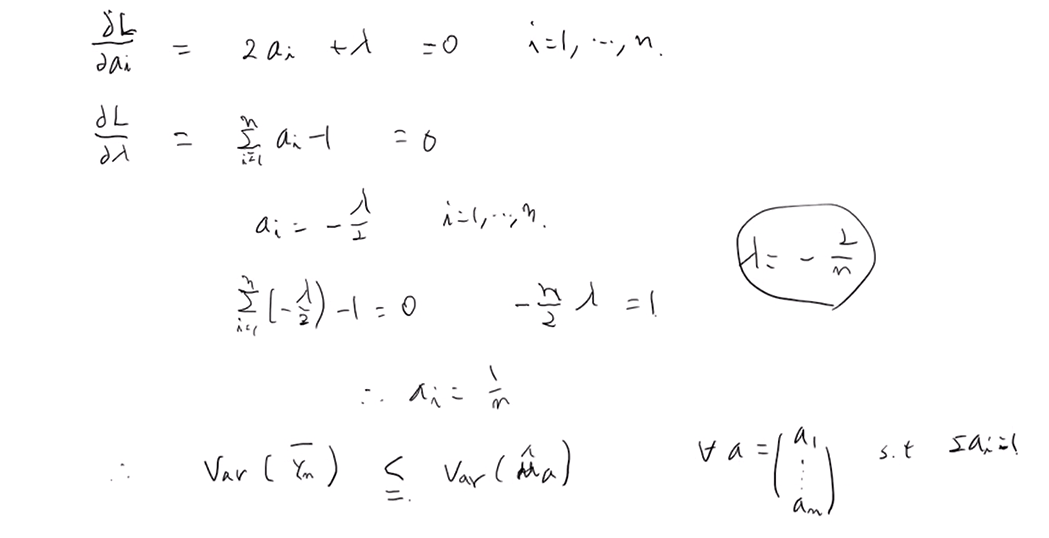 ∂L/∂aᵢ = 2aᵢ + λ = 0 i=1, ⋯, n.
∂L/∂λ = Σᵢ₌₁ⁿ aᵢ - 1 = 0
aᵢ = - λ/2 i=1, ⋯, n.
λ = - 2/n
Σᵢ₌₁ⁿ (- λ/2) - 1 = 0 - n/2 λ = 1
∴ aᵢ = 1/n
∴ Var(Y̅ₙ) ≤ Var(μ̂a) ∀ a = (a₁ ⋮ aₙ) s.t Σaᵢ=1